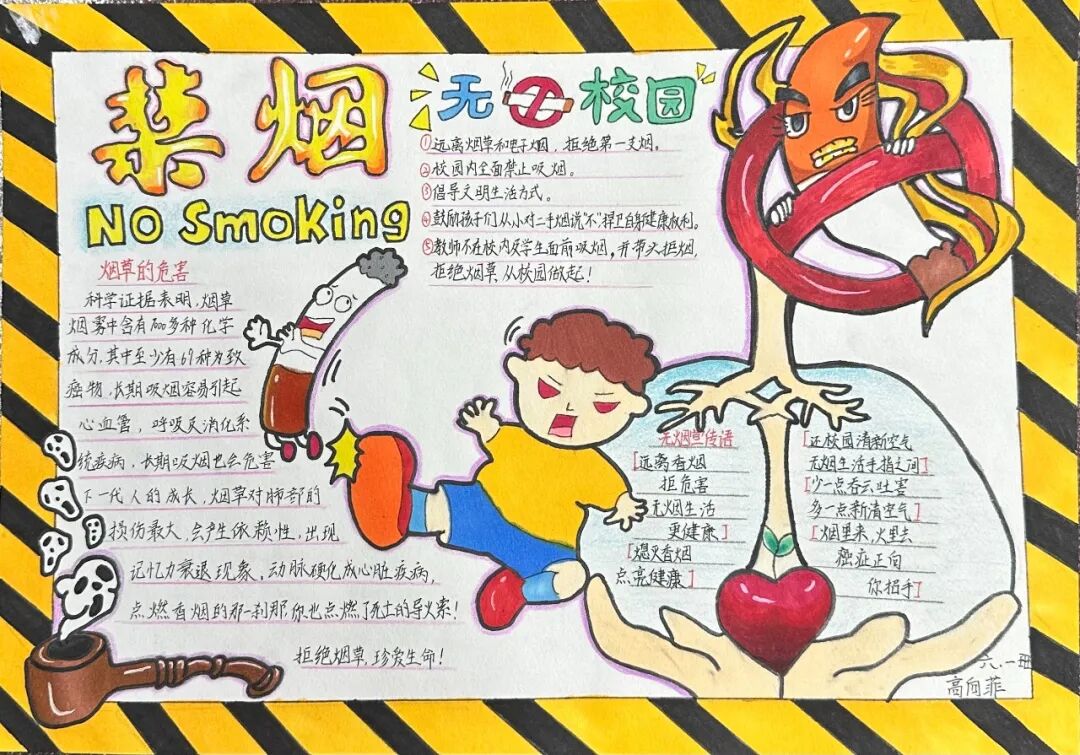 禁烟
No Smoking
无校园
①远离烟草和电子烟，拒绝第一支烟。
②校园内全面禁止吸烟。
③倡导文明生活方式。
④鼓励孩子们从小对二手烟说“不”捍卫自身健康权利。
⑤教师不在校内及学生面前吸烟，并带头拒烟，
拒绝烟草，从校园做起！
烟草的危害
科学证据表明，烟草
烟雾中含有7000多种化学
成分，其中至少有69种为致
癌物，长期吸烟容易引起
心血管，呼吸及消化系
统疾病，长期吸烟也会危害
下一代人的成长，烟草对肺部的
损伤最大，会产生依赖性，出现
记忆力衰退现象，动脉硬化成心脏疾病，
点燃香烟的那一刹那你也点燃了死亡的导火索！
拒绝烟草，珍爱生命！
无烟宣传语
[远离香烟
拒危害
无烟生活
更健康]
[熄灭香烟
点亮健康]
[还校园清新空气
无烟生活手指之间]
[少一点吞云吐害
多一点新清空气]
[烟里来，火里去
癌症正向
你招手]
六.一班
高向菲